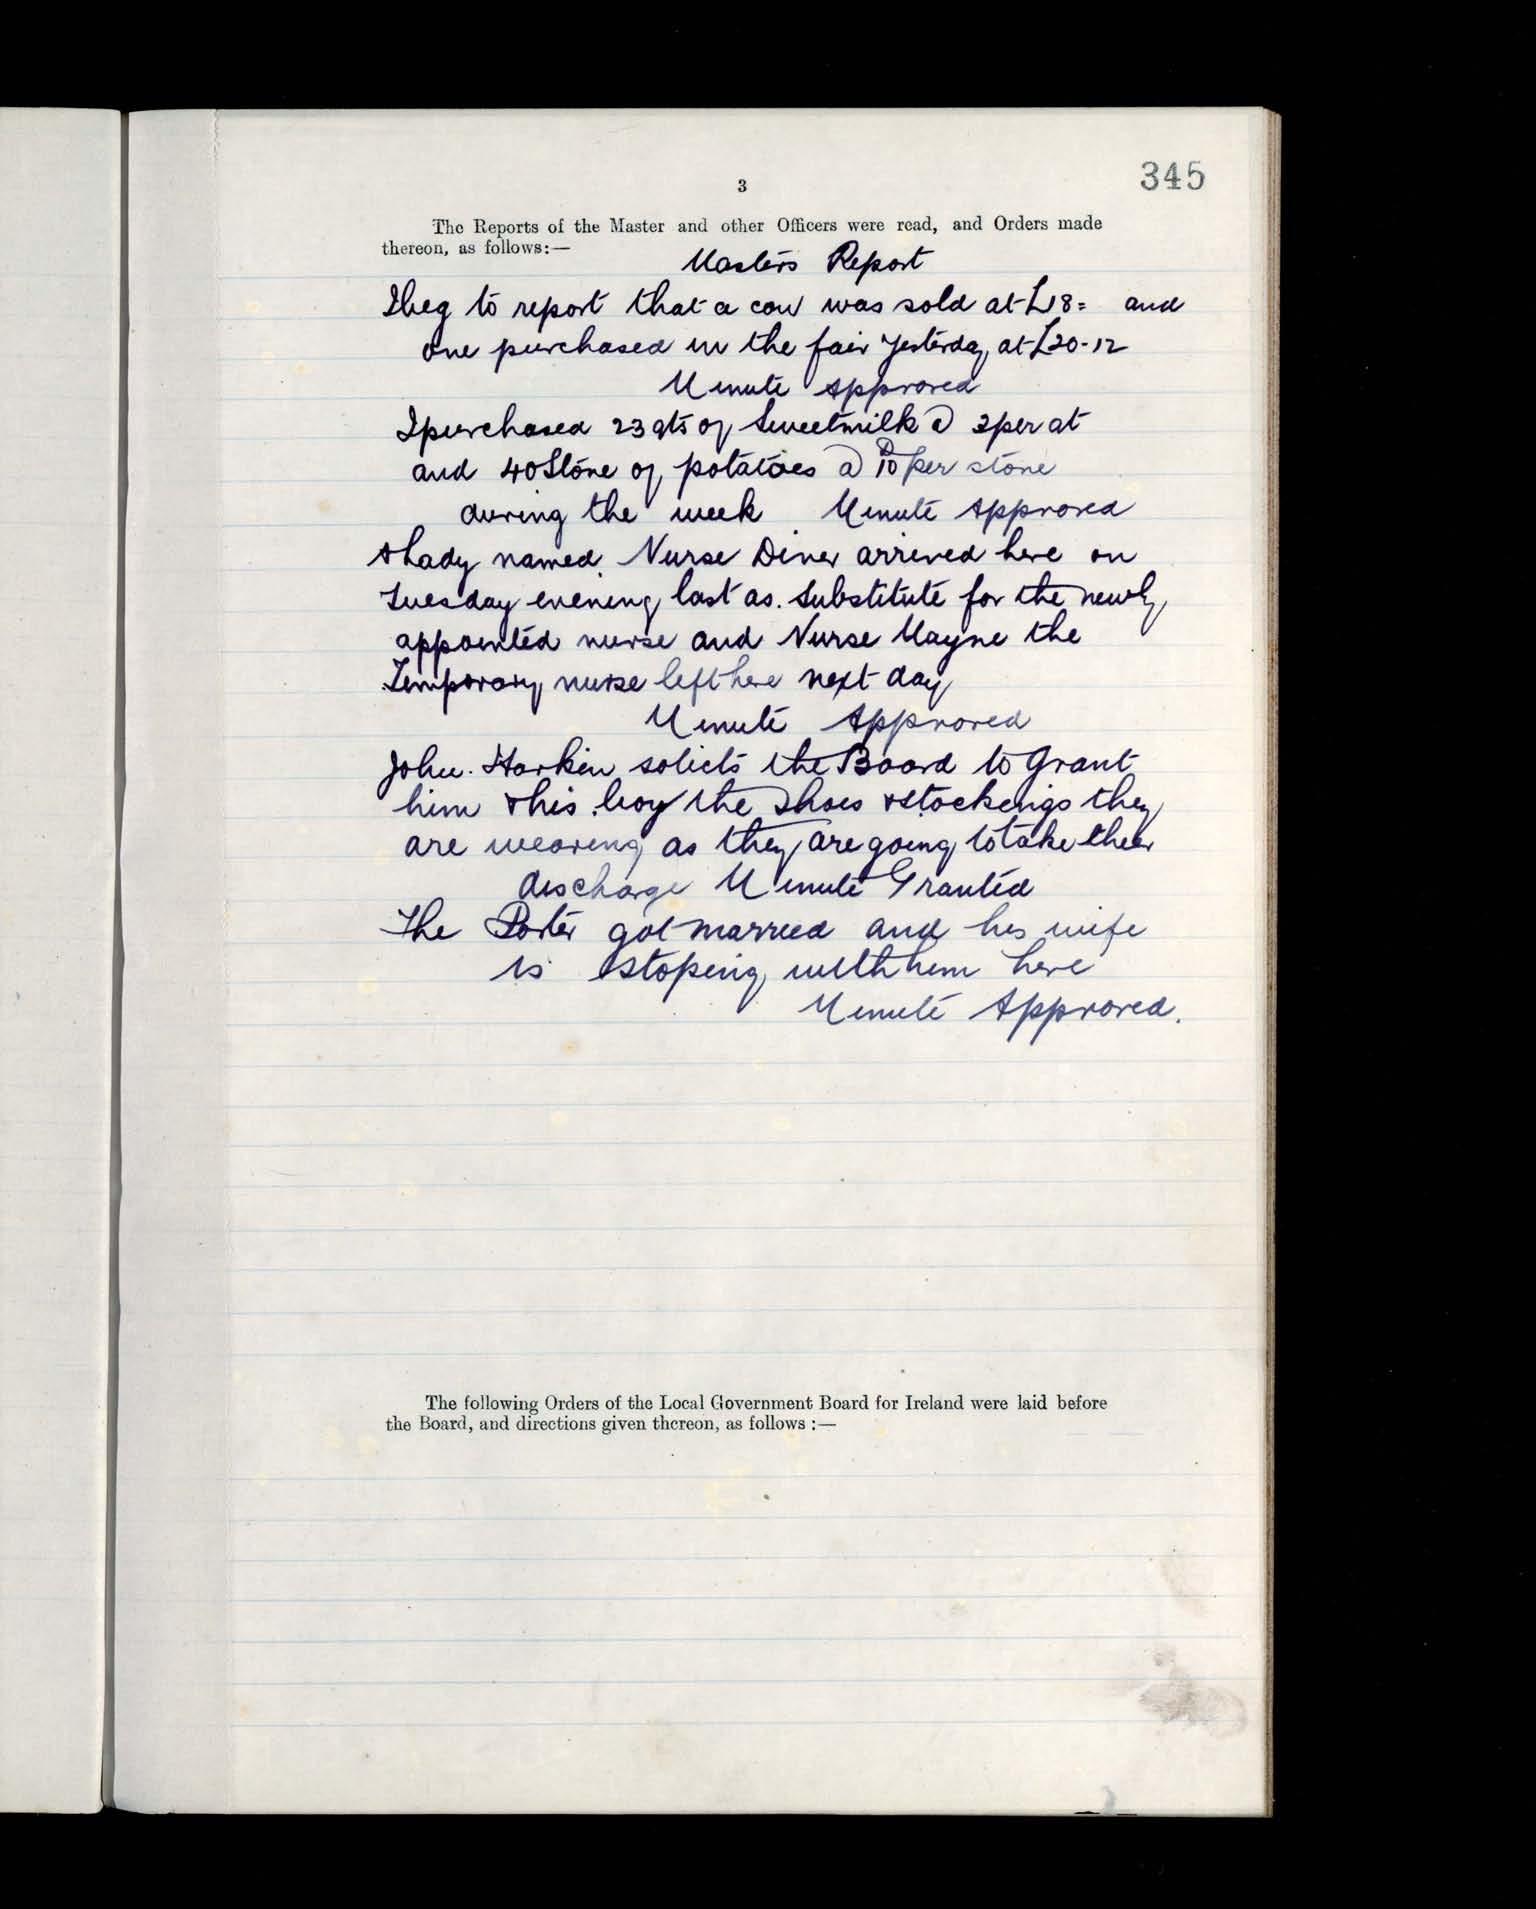 345
3
The Reports of the Master and other Officers were read, and Orders made
thereon, as follows:—
Masters Report
I beg to report that a cow was sold at £18= and
one purchased in the fair yesterday at £20-12
Minute Approved
I purchased 23 qts of Sweetmilk @ 3 per qt
and 40 Stone of potatoes @ 10D per stone
during the week Minute Approved
A Lady named Nurse Diver arrived here on
Tuesday evening last as Substitute for the newly
appointed nurse and Nurse Mayne the
Temporary nurse left here next day
Minute Approved
John Harkin solicts the Board to Grant
him & his boy the shoes & stockings they
are wearing as they are going to take their
discharge Minute Granted
The Porter got married and his wife
is stoping with him here
Minute Approved.
The following Orders of the Local Government Board for Ireland were laid before
the Board, and directions given thereon, as follows :—